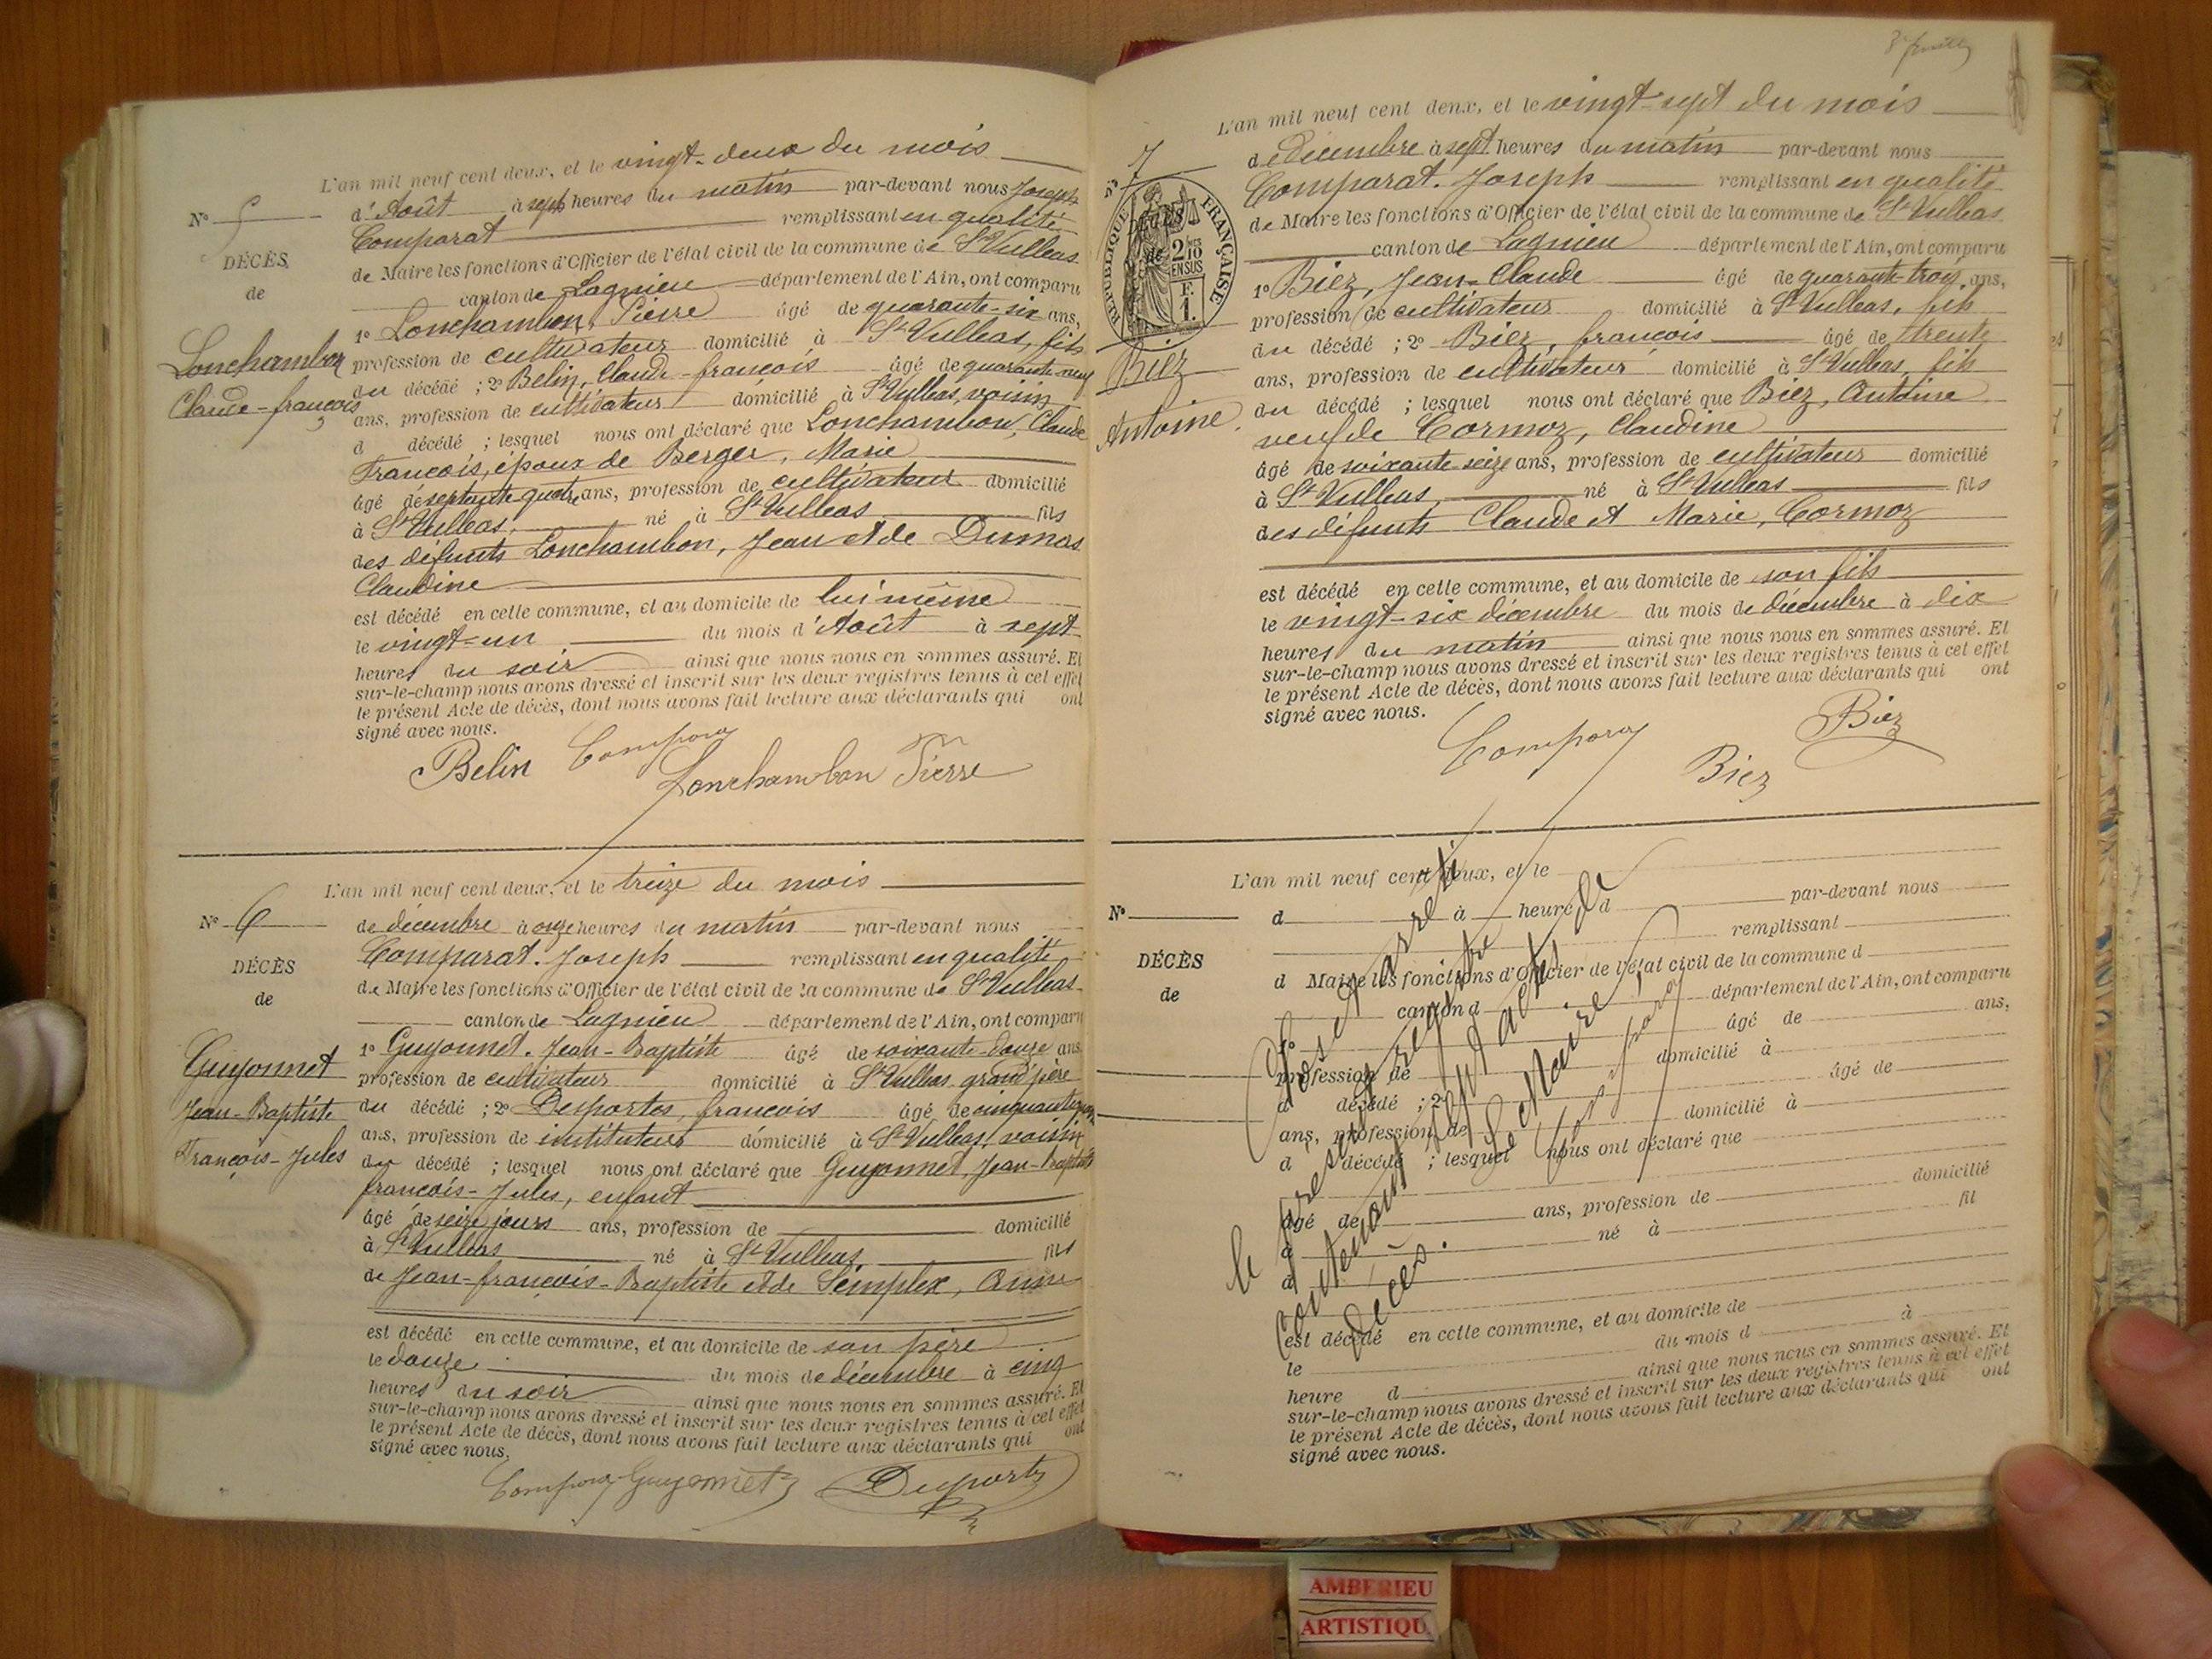 L'an mil neuf cent deux, et le vingt-deux du mois
N° 5
d'Août à sept heures du matin par-devant nous Joseph
Comparat remplissant en qualité
DÉCÈS
de Maire les fonctions d'Officier de l'état civil de la commune de St Vulbas
de
canton de Lagnieu département de l'Ain, ont comparu
1° Lonchambon, Pierre âgé de quarante-six ans,
Lonchambon
profession de cultivateur domicilié à St Vulbas, fils
Claude-françois
du décédé ; 2° Belin, Claude-françois âgé de quarante-neuf
ans, profession de cultivateur domicilié à St Vulbas, voisin
d décédé ; lesquel nous ont déclaré que Lonchambon, Claude
François, époux de Berger, Marie
âgé de septante quatre ans, profession de cultivateur domicilié
à St Vulbas, né à St Vulbas fils
des défunts Lonchambon, Jean et de Dumas
Claudine
est décédé en cette commune, et au domicile de lui même
le vingt-un du mois d'Août à sept
heures du soir ainsi que nous nous en sommes assuré. Et
sur-le-champ nous avons dressé et inscrit sur les deux registres tenus à cet effet
le présent Acte de décès, dont nous avons fait lecture aux déclarants qui ont
signé avec nous.
Belin Comparat Lonchambon Pierre
L'an mil neuf cent deux, et le treize du mois
N° 6
de décembre à onze heures du matin par-devant nous
Comparat. Joseph remplissant en qualité
DÉCÈS
de Maire les fonctions d'Officier de l'état civil de la commune de St Vulbas
de
canton de Lagnieu département de l'Ain, ont comparu
Guyonnet
1° Guyonnet. Jean-Baptiste âgé de soixante-douze ans
profession de cultivateur domicilié à St Vulbas grand père
Jean-Baptiste
du décédé ; 2° Desportes, françois âgé de
François-Jules
ans, profession de instituteur domicilié à St Vulbas, voisin
du décédé ; lesquel nous ont déclaré que Guyonnet, Jean-Baptiste
françois-Jules, enfant
âgé de seize jours ans, profession de domicilié
à St Vulbas né à St Vulbas fils
de Jean-françois-Baptiste et de Simplex, Anne
est décédé en cette commune, et au domicile de son père
le douze du mois de décembre à cinq
heures du soir ainsi que nous nous en sommes assuré. Et
sur-le-champ nous avons dressé et inscrit sur les deux registres tenus à cet effet
le présent Acte de décès, dont nous avons fait lecture aux déclarants qui ont
signé avec nous.
Comparat Guyonnet Desportes
L'an mil neuf cent deux, et le vingt-sept du mois
N° 7
de Décembre à sept heures du matin par-devant nous
Comparat. Joseph remplissant en qualité
de Maire les fonctions d'Officier de l'état civil de la commune de St Vulbas
canton de Lagnieu département de l'Ain, ont comparu
RÉPUBLIQUE FRANÇAISE
DÉCÈS
de
2/10 EN SUS
F. 1.
1° Biez, Jean-Claude âgé de quarante-trois ans,
profession de cultivateur domicilié à St Vulbas, fils
Biez
Antoine
du décédé ; 2° Biez, françois âgé de trente
ans, profession de cultivateur domicilié à St Vulbas, fils
du décédé ; lesquel nous ont déclaré que Biez, Antoine
veuf de Cormoz, Claudine
âgé de soixante seize ans, profession de cultivateur domicilié
à St Vulbas, né à St Vulbas fils
des défunts Claude et Marie, Cormoz
est décédé en cette commune, et au domicile de son fils
le vingt-six décembre du mois de décembre à dix
heures du matin ainsi que nous nous en sommes assuré. Et
sur-le-champ nous avons dressé et inscrit sur les deux registres tenus à cet effet
le présent Acte de décès, dont nous avons fait lecture aux déclarants qui ont
signé avec nous.
Comparat Biez
Biez
L'an mil neuf cent deux, et le
N°
d à heure d par-devant nous
remplissant
DÉCÈS
d Maire les fonctions d'Officier de l'état civil de la commune d
de
canton d département de l'Ain, ont comparu
1° âgé de ans,
profession de domicilié à
d décédé ; 2° âgé de
ans, profession de domicilié à
d décédé ; lesquel nous ont déclaré que
âgé de ans, profession de domicilié
à né à fil
d
est décédé en cette commune, et au domicile de
le du mois d à
heure d ainsi que nous nous en sommes assuré. Et
sur-le-champ nous avons dressé et inscrit sur les deux registres tenus à cet effet
le présent Acte de décès, dont nous avons fait lecture aux déclarants qui ont
signé avec nous.
Clos et arrêté
le présent registre
contenant sept actes de
décès.
Le Maire,
Comparat
AMBERIEU
ARTISTIQU